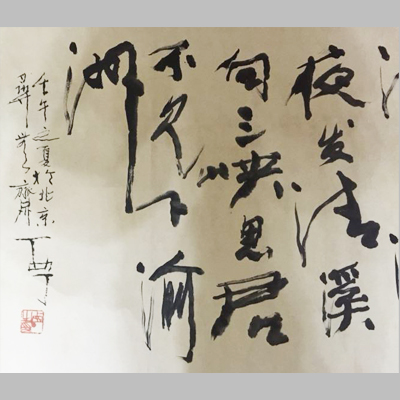 夜发清溪
向三峡思君
不见下渝
洲
壬午之夏於北京